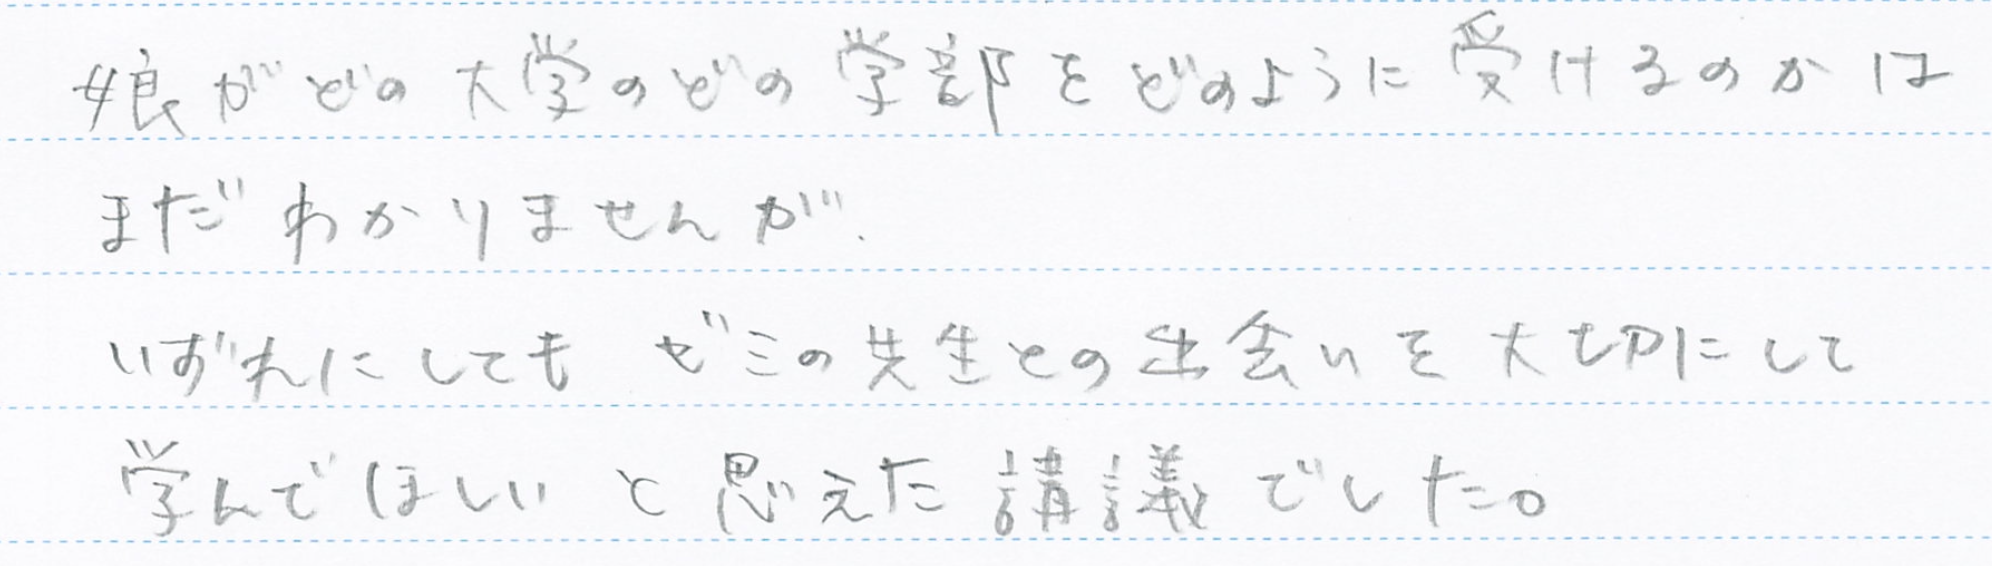 娘がどの大学のどの学部をどのように受けるのかは
まだわかりませんが、
いずれにしても ゼミの先生との出会いを大切にして
学んでほしい と思えた講議でした。